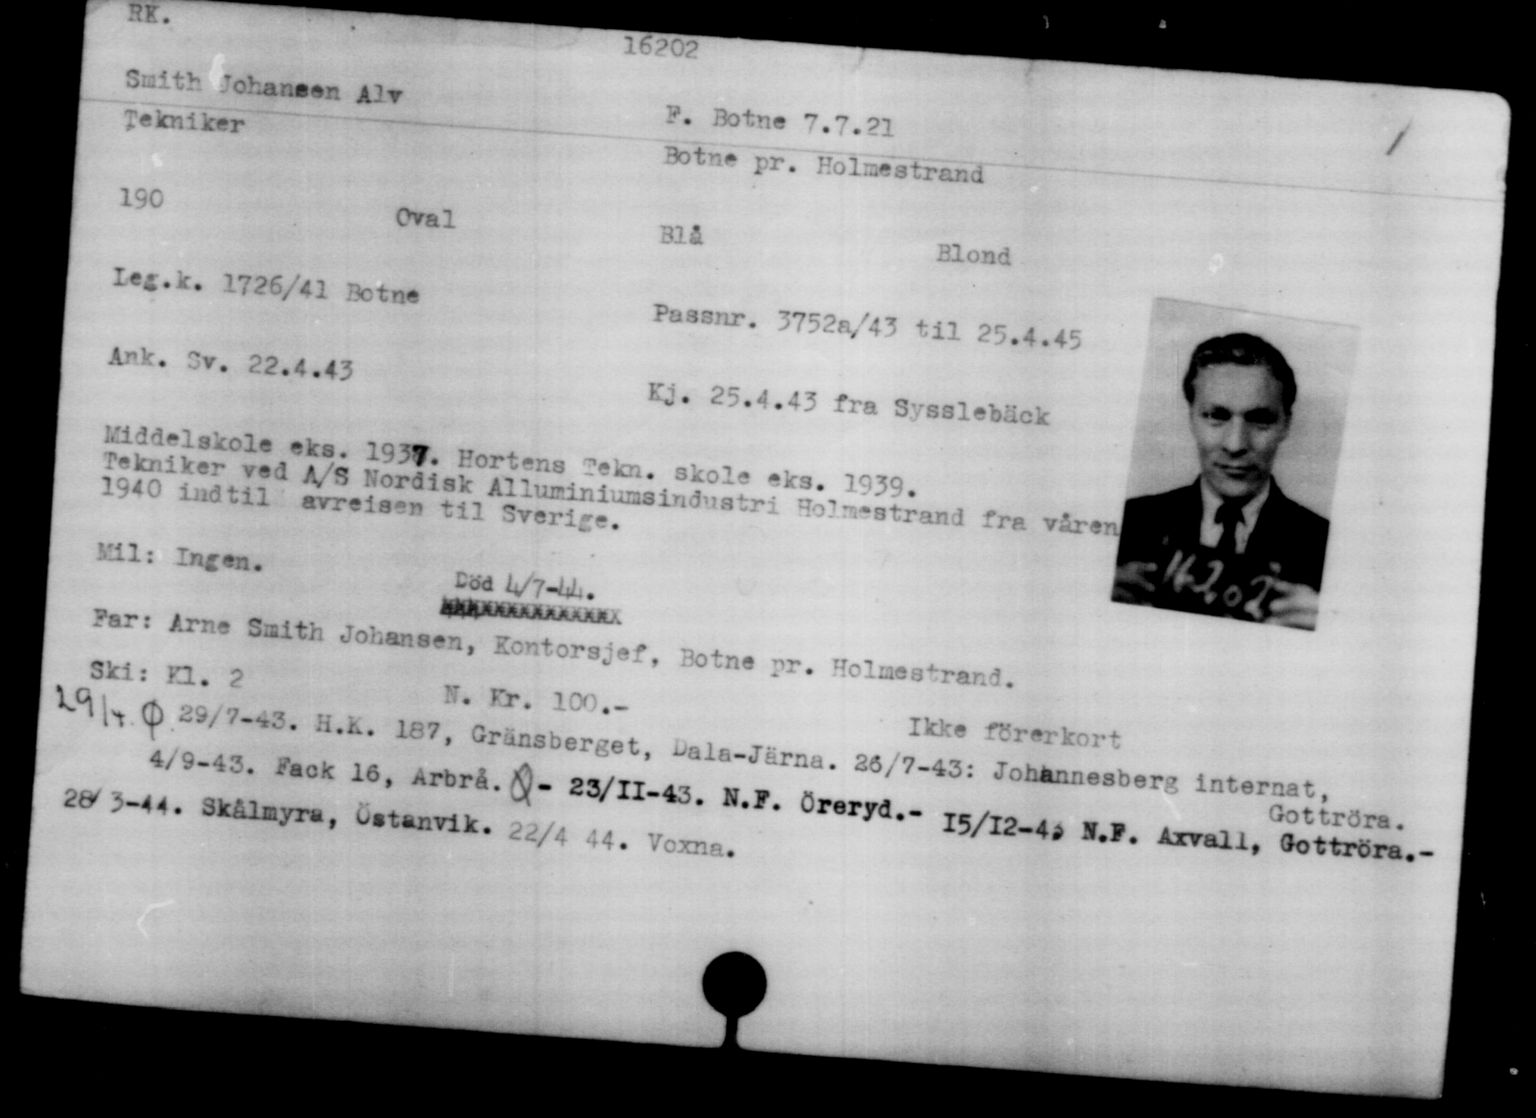 RK.
16202
Smith Johansen Alv
F. Botne 7.7.21
Tekniker
Botne pr. Holmestrand
190
Oval
Blå
Blond
Leg.k. 1726/41 Botne
Passnr. 3752a/43 til 25.4.45
Ank. Sv. 22.4.43
Kj. 25.4.43 fra Sysslebäck
Middelskole eks. 1937. Hortens Tekn. skole eks. 1939.
Tekniker ved A/S Nordisk Alluminiumsindustri Holmestrand fra våren
1940 indtil avreisen til Sverige.
16202
Mil: Ingen.
Död 4/7-44.
Far: Arne Smith Johansen, Kontorsjef, Botne pr. Holmestrand.
Ski: Kl. 2
N. Kr. 100.-
Ikke förerkort
29/4 φ 29/7-43. H.K. 187, Gränsberget, Dala-Järna. 26/7-43: Johannesberg internat,
Gottröra.
4/9-43. Fack 16, Arbrå. - 23/II-43. N.F. Öreryd.- I5/I2-43 N.F. Axvall, Gottröra.-
28/3-44. Skålmyra, Östanvik. 22/4 44. Voxna.